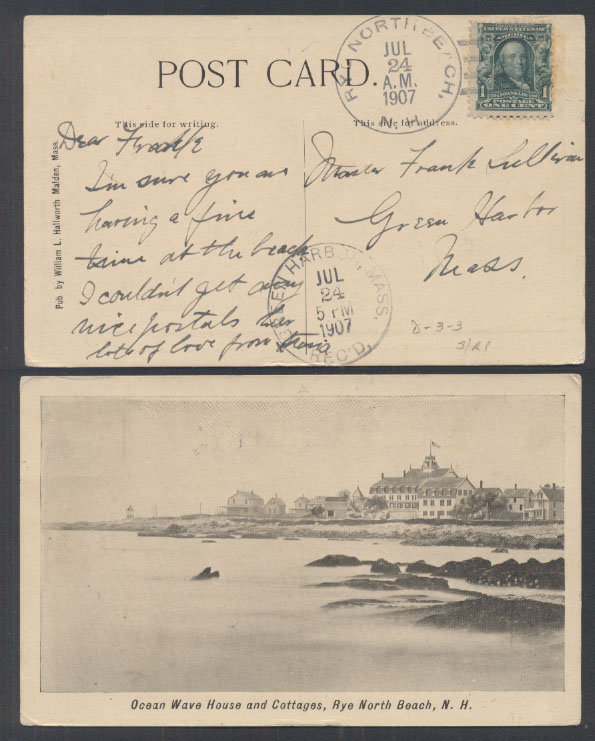 POST CARD.
This side for writing.
This side for address.
RYE NORTH BEACH,
JUL
24
A.M.
1907
N.H.
UNITED STATES OF AMERICA
1 1
POSTAGE
ONE CENT
Pub by William L. Hallworth Malden, Mass.
Dear
I'm sure you are
having a fine
time at the beach
I couldn't get any
nice postals here
lots of love from
Master Frank Sullivan
Green Harbor
Mass.
GREEN HARBOR, MASS.
JUL
24
5 PM
1907
REC'D.
D-3-3
Ocean Wave House and Cottages, Rye North Beach, N. H.